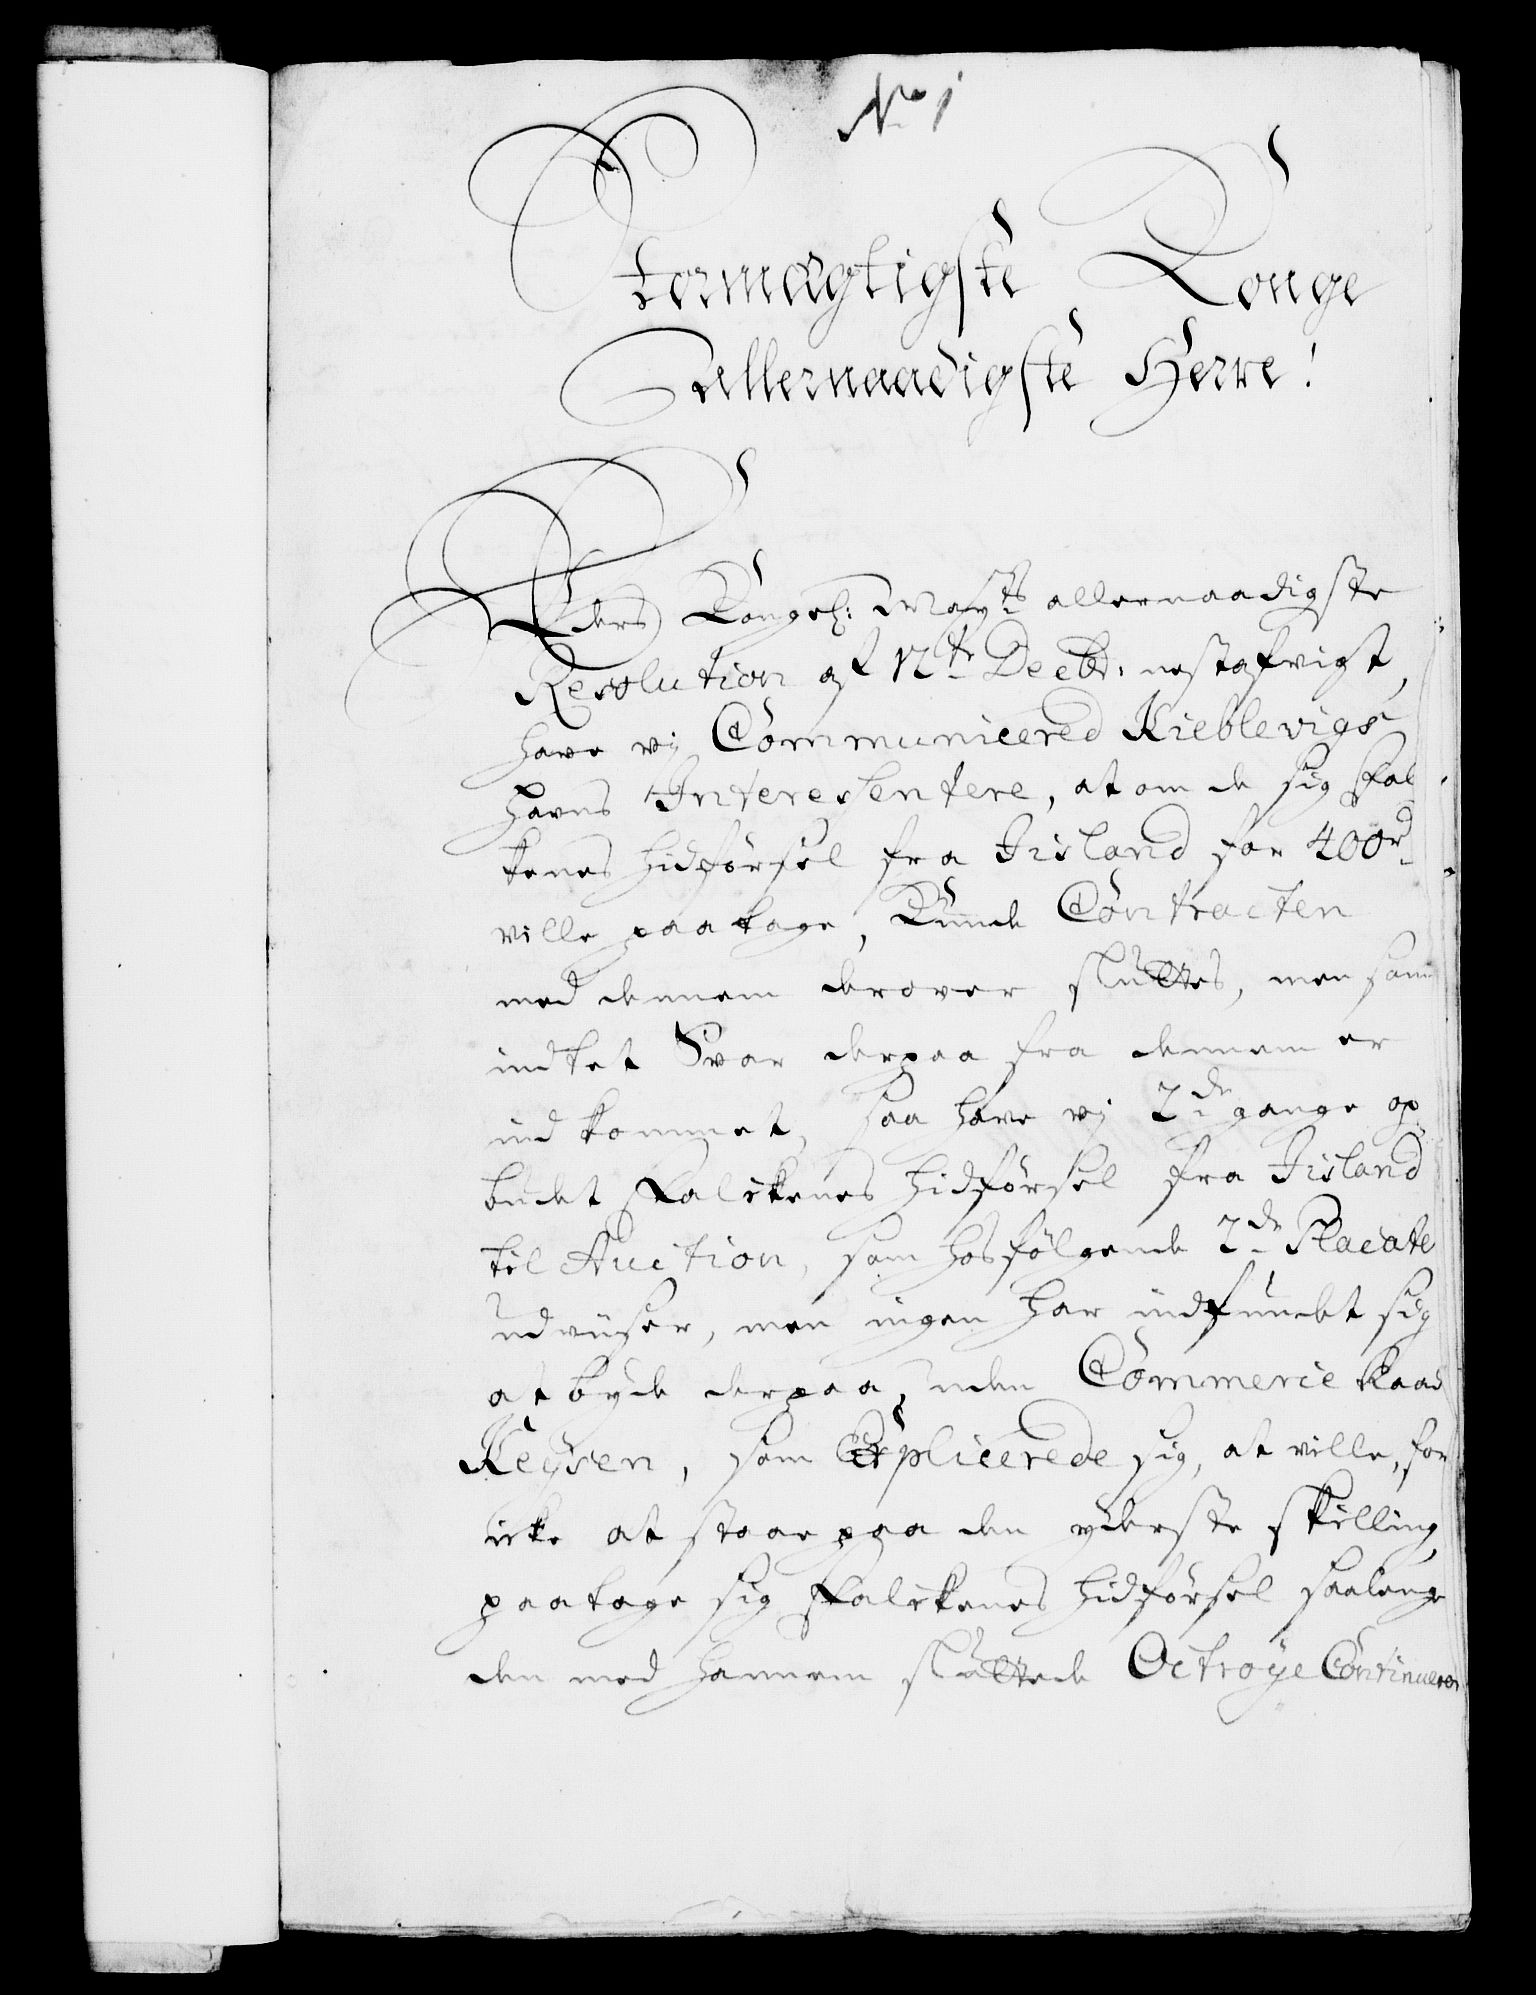 No 1
Stormægtigste Konge
Allernaadigste Herre!
Eders Kongel: Mayts allernaadigste
Resolution af 12te Decbr: nestafvigt,
have vi Communicered Kieblevigs
Havns Interessentere, at om de sig Fal
kenes hidførsel fra Iisland for 400rd
ville paatage, Kunde Contracten
med dennem derover sluttes, men som
indtet Svar derpaa fra dennem er
ind kommet, saa have vi 2de gange op
budet Falckenes hidførsel fra Iisland
til Auction, som hosfølgende 2de Placate
udviiser, men ingen har indfundet sig
at byde derpaa, uden Commerce Raad
Keysen, som Explicerede sig, at ville, for
icke at staae paa den yderste skilling,
paatage sig Falckenes hidførsel saalenge
den med hannem sluttede Octroye Continuerer